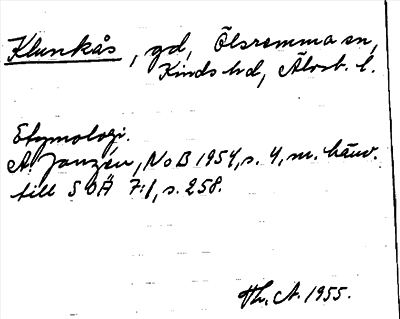 Klunkås, gd, Ölsremma sn,
Kinds hd, Älvsb. l.
Etymologi.
A. Janzén, NoB 1954, s. 4, m. hänv.
till SOÄ 7:1, s. 258.
Hz. A. 1955.